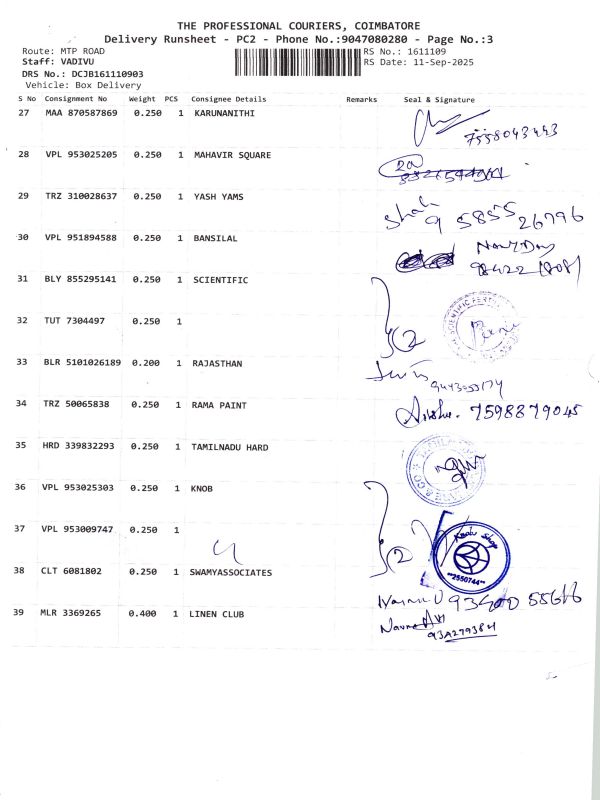 THE PROFESSIONAL COURIERS, COIMBATORE
Delivery Runsheet - PC2 - Phone No.:9047080280 - Page No.:3
Route: MTP ROAD RS No.: 1611109
Staff: VADIVU RS Date: 11-Sep-2025
DRS No.: DCJB161110903
Vehicle: Box Delivery
S No Consignment No Weight PCS Consignee Details Remarks Seal & Signature
27 MAA 870587869 0.250 1 KARUNANITHI
7558043443
28 VPL 953025205 0.250 1 MAHAVIR SQUARE
29 TRZ 310028637 0.250 1 YASH YAMS
9 5855 26796
30 VPL 951894588 0.250 1 BANSILAL
31 BLY 855295141 0.250 1 SCIENTIFIC
32 TUT 7304497 0.250 1
2
33 BLR 5101026189 0.200 1 RAJASTHAN
34 TRZ 50065838 0.250 1 RAMA PAINT
7598879045
35 HRD 339832293 0.250 1 TAMILNADU HARD
36 VPL 953025303 0.250 1 KNOB
37 VPL 953009747 0.250 1
2
**2550744**
38 CLT 6081802 0.250 1 SWAMYASSOCIATES
39 MLR 3369265 0.400 1 LINEN CLUB